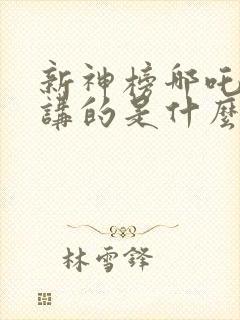 新神榜哪吒
講的是什麼
林雪鋒